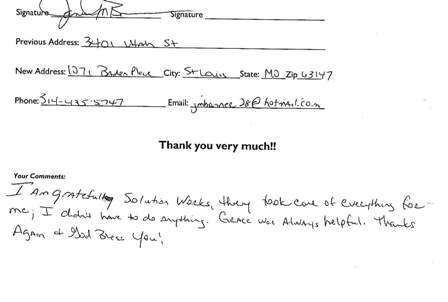 Signature Signature
Previous Address: 3401 Utah St
New Address: 1271 Baden Place City: St Louis State: MO Zip 63147
Phone: 314-435-5747 Email: @hotmail.com
Thank you very much!!
Your Comments:
I am gratefully Solution Works, they took care of everything for
me; I didn't have to do anything. Grace was Always helpful. Thanks
Again & God Bless You!